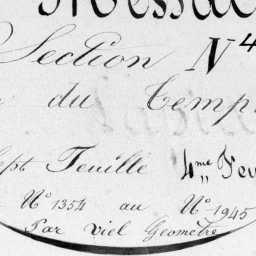 Section N 4
du Temp
Sept Feuille 4me Feu
No 1354 au No 1945
Par Viel Géomètre